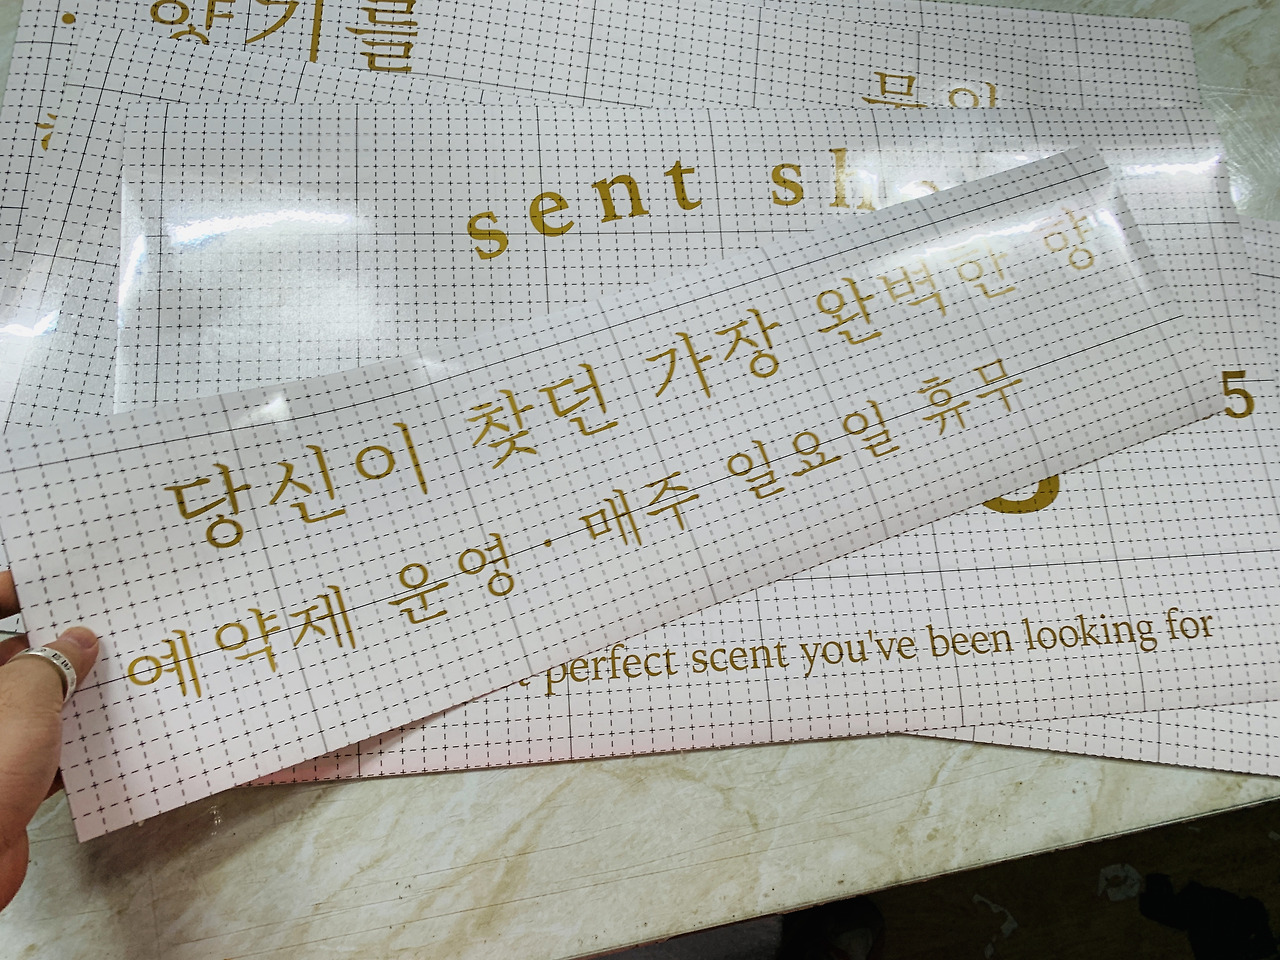 향기를
sent
당신이 찾던 가장 완벽한 향
예약제 운영 · 매주 일요일 휴무
5
perfect scent you've been looking for